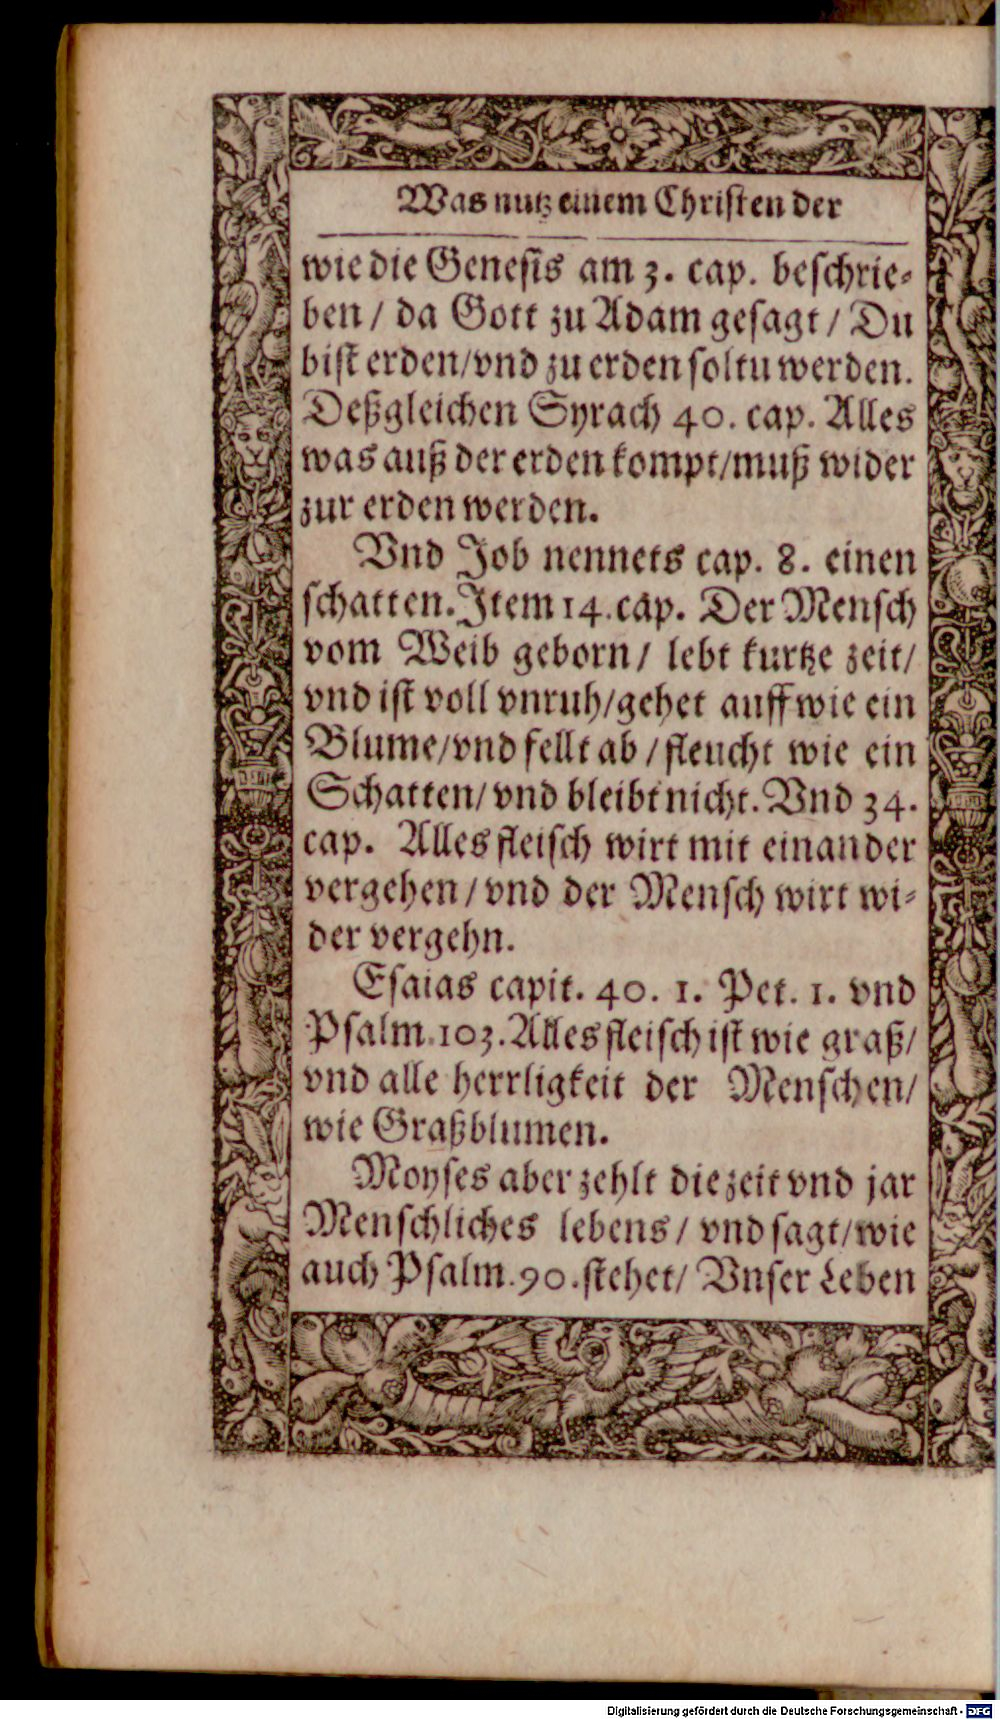 Was nutz einem Christen der
wie die Genesis am 3. cap. beschrie-
ben / da Gott zu Adam gesagt / Du
bist erden/vnd zu erden soltu werden.
Deßgleichen Syrach 40. cap. Alles
was auß der erden kompt/muß wider
zur erden werden.
Vnd Job nennets cap. 8. einen
schatten. Item 14. cap. Der Mensch
vom Weib geborn / lebt kurtze zeit/
vnd ist voll vnruh/gehet auff wie ein
Blume/vnd fellt ab / fleucht wie ein
Schatten/ vnd bleibt nicht. Vnd 34.
cap. Alles fleisch wirt mit einander
vergehen / vnd der Mensch wirt wi-
der vergehn.
Esaias capit. 40. 1. Pet. 1. vnd
Psalm. 103. Alles fleisch ist wie graß/
vnd alle herrligkeit der Menschen/
wie Graßblumen.
Moyses aber zehlt die zeit vnd jar
Menschliches lebens / vnd sagt/wie
auch Psalm. 90. stehet/ Vnser Leben
Digitalisierung gefördert durch die Deutsche Forschungsgemeinschaft - DFG